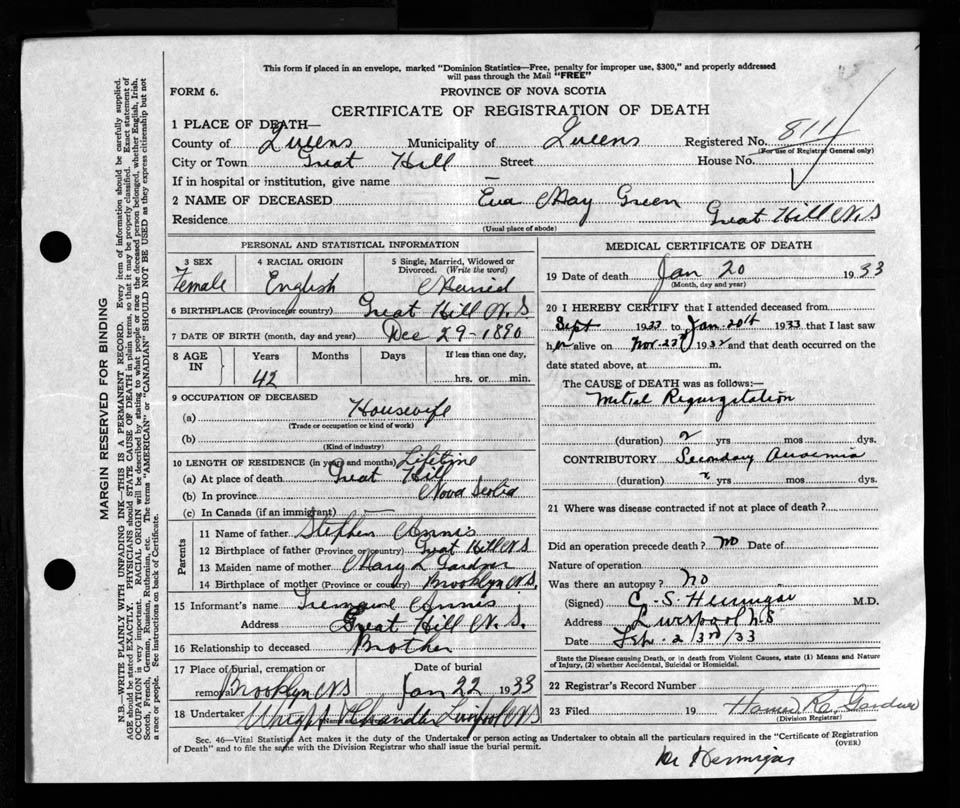 This form if placed in an envelope, marked "Dominion Statistics—Free, penalty for improper use, $300," and properly addressed
will pass through the Mail "FREE"
FORM 6.
PROVINCE OF NOVA SCOTIA
CERTIFICATE OF REGISTRATION OF DEATH
1 PLACE OF DEATH—
County of Queens Municipality of Queens Registered No. 811
(For use of Registrar General only)
City or Town Great Hill Street House No.
If in hospital or institution, give name —
2 NAME OF DECEASED Eva May Green
Residence Great Hill N.S
(Usual place of abode)
PERSONAL AND STATISTICAL INFORMATION
3 SEX 4 RACIAL ORIGIN 5 Single, Married, Widowed or
Divorced. (Write the word)
Female English Married
6 BIRTHPLACE (Province or country) Great Hill N.S
7 DATE OF BIRTH (month, day and year) Dec 29-1890
8 AGE IN Years Months Days If less than one day,
42 hrs. or min.
9 OCCUPATION OF DECEASED
(a) Housewife
(Trade or occupation or kind of work)
(b)
(Kind of industry)
10 LENGTH OF RESIDENCE (in years and months) Lifetime
(a) At place of death Great Hill
(b) In province Nova Scotia
(c) In Canada (if an immigrant) —
Parents
11 Name of father Stephen Annis
12 Birthplace of father (Province or country) Great Hill N.S
13 Maiden name of mother Mary L Gardner
14 Birthplace of mother (Province or country) Brooklyn N.S.
15 Informant's name Annis
Address Great Hill N.S.
16 Relationship to deceased Brother
17 Place of burial, cremation or Date of burial
removal Brooklyn NS Jan 22 1933
18 Undertaker Wright Chandler Liverpool NS
MEDICAL CERTIFICATE OF DEATH
19 Date of death Jan 20 1933
(Month, day and year)
20 I HEREBY CERTIFY that I attended deceased from
Sept 19 to Jan. 20th 1933 that I last saw
her alive on Nov. 1932 and that death occurred on the
date stated above, at m.
The CAUSE of DEATH was as follows:—
Mitral Regurgitation
(duration) 2 yrs mos dys.
CONTRIBUTORY Secondary Anaemia
(duration) yrs mos dys.
21 Where was disease contracted if not at place of death?
Did an operation precede death? no Date of
Nature of operation
Was there an autopsy? no
(Signed) C. S. Hennigar M.D.
Address Liverpool N.S
Date Feb. 2/3rd/33
State the Disease causing Death, or in death from Violent Causes, state (1) Means and Nature
of Injury, (2) whether Accidental, Suicidal or Homicidal.
22 Registrar's Record Number
23 Filed 19 Gardner
(Division Registrar)
Sec. 46—Vital Statistics Act makes it the duty of the Undertaker or person acting as Undertaker to obtain all the particulars required in the "Certificate of Registration
of Death" and to file the same with the Division Registrar who shall issue the burial permit. (OVER)
Dr Hennigar
MARGIN RESERVED FOR BINDING
N.B.—WRITE PLAINLY WITH UNFADING INK—THIS IS A PERMANENT RECORD. Every item of information should be carefully supplied.
AGE should be stated EXACTLY. PHYSICIANS should STATE CAUSE OF DEATH in plain terms, so that it may be properly classified. Exact statement of
OCCUPATION is very important. RACIAL ORIGIN will be described by stating to what people or race the deceased person belonged, whether English, Irish,
Scotch, French, German, Russian, Ruthenian, etc. The terms "AMERICAN" or "CANADIAN" SHOULD NOT BE USED as they express citizenship but not
a race or people. See instructions on back of Certificate.